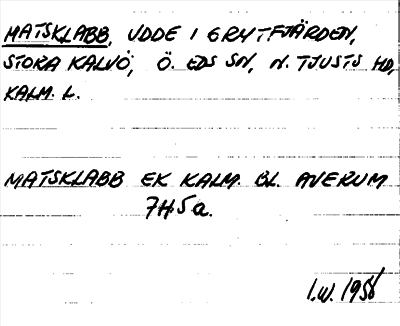 MATSKLABB, UDDE I GRYTFJÄRDEN,
STORA KALVÖ, Ö. EDS SN, N. TJUSTS HD,
KALM. L.
MATSKLABB EK KALM. BL. AVERUM
7H5a.
I.W. 1956